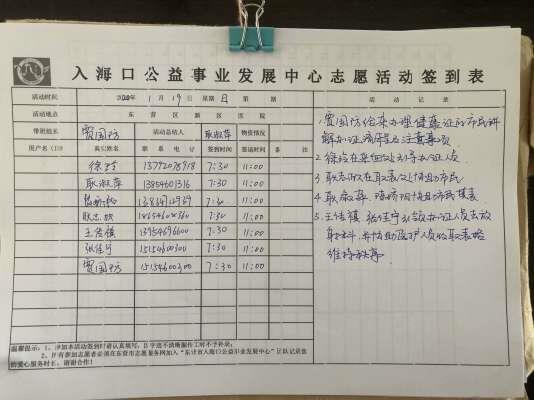 入海口公益事业发展中心志愿活动签到表
活动时间 2020年1月19日 星期日 第 期 活动记录
活动地点 东营区 新区 医院
带班组长 贾国芳 活动总结人 耿淑萍 物资情况
用户名(ID) 真实姓名 联系电话 签到时间 签退时间 备注
徐玲 7:30 11:00
耿淑萍 13854601316 7:30 11:00
7:30 11:00
耿志欣 7:30 11:00
王倩镇 13954696600 7:30 11:00
张佳宁 15154600300 7:30 11:00
贾国芳 15154600300 7:30 11:00
1、贾国芳给来办理健康证的市民讲
解办证流程及注意事项
2 徐玲在来回处引导办证人员
3 耿志欣在取表处协助市民
4 耿淑萍 协助市民填表
5、王倩镇 张佳宁 办证人员去放
射科，并协助医护人员收取表格
维持秩序
温馨提示：1、参加本活动签到时请认真填写，因字迹不清晰漏作工时不予补录；
2、所有参加志愿者必须在东营市志愿服务网加入“东营市入海口公益事业发展中心”团队记录您
的爱心服务时长，谢谢合作！